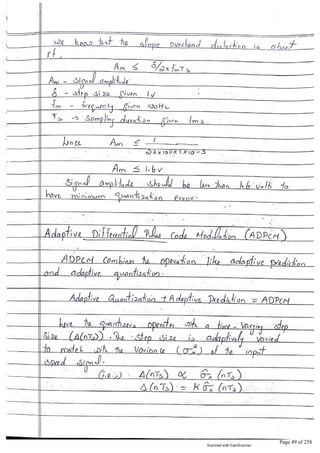 we know that the slope overload distortion is absent
if.
Am ≤ δ/2πfmTs
Am - signal amplitude
δ - step size given 1v
fm - frequency given 100Hz
Ts → Sampling duration given 1ms
hence Am ≤ 1
2π×100×1×10-3
Am ≤ 1.6v
Signal amplitude should be less than 1.6 volts to
have minimum quantization error.
Adaptive Differential Pulse Code Modulation (ADPCM)
ADPCM Combines the operation like adaptive prediction
and adaptive quantization.
Adaptive Quantization + Adaptive Prediction = ADPCM
here the quantizers operates with a time-varying step
Size (Δ(nTs)). The step size is adaptively varied
to match with the Variance (σx²) of the input
speed signal.
(i.e.,) Δ(nTs) ∝ σ̂x (nTs)
Δ(nTs) = K σ̂x (nTs)
Page 49 of 258
Scanned with CamScanner